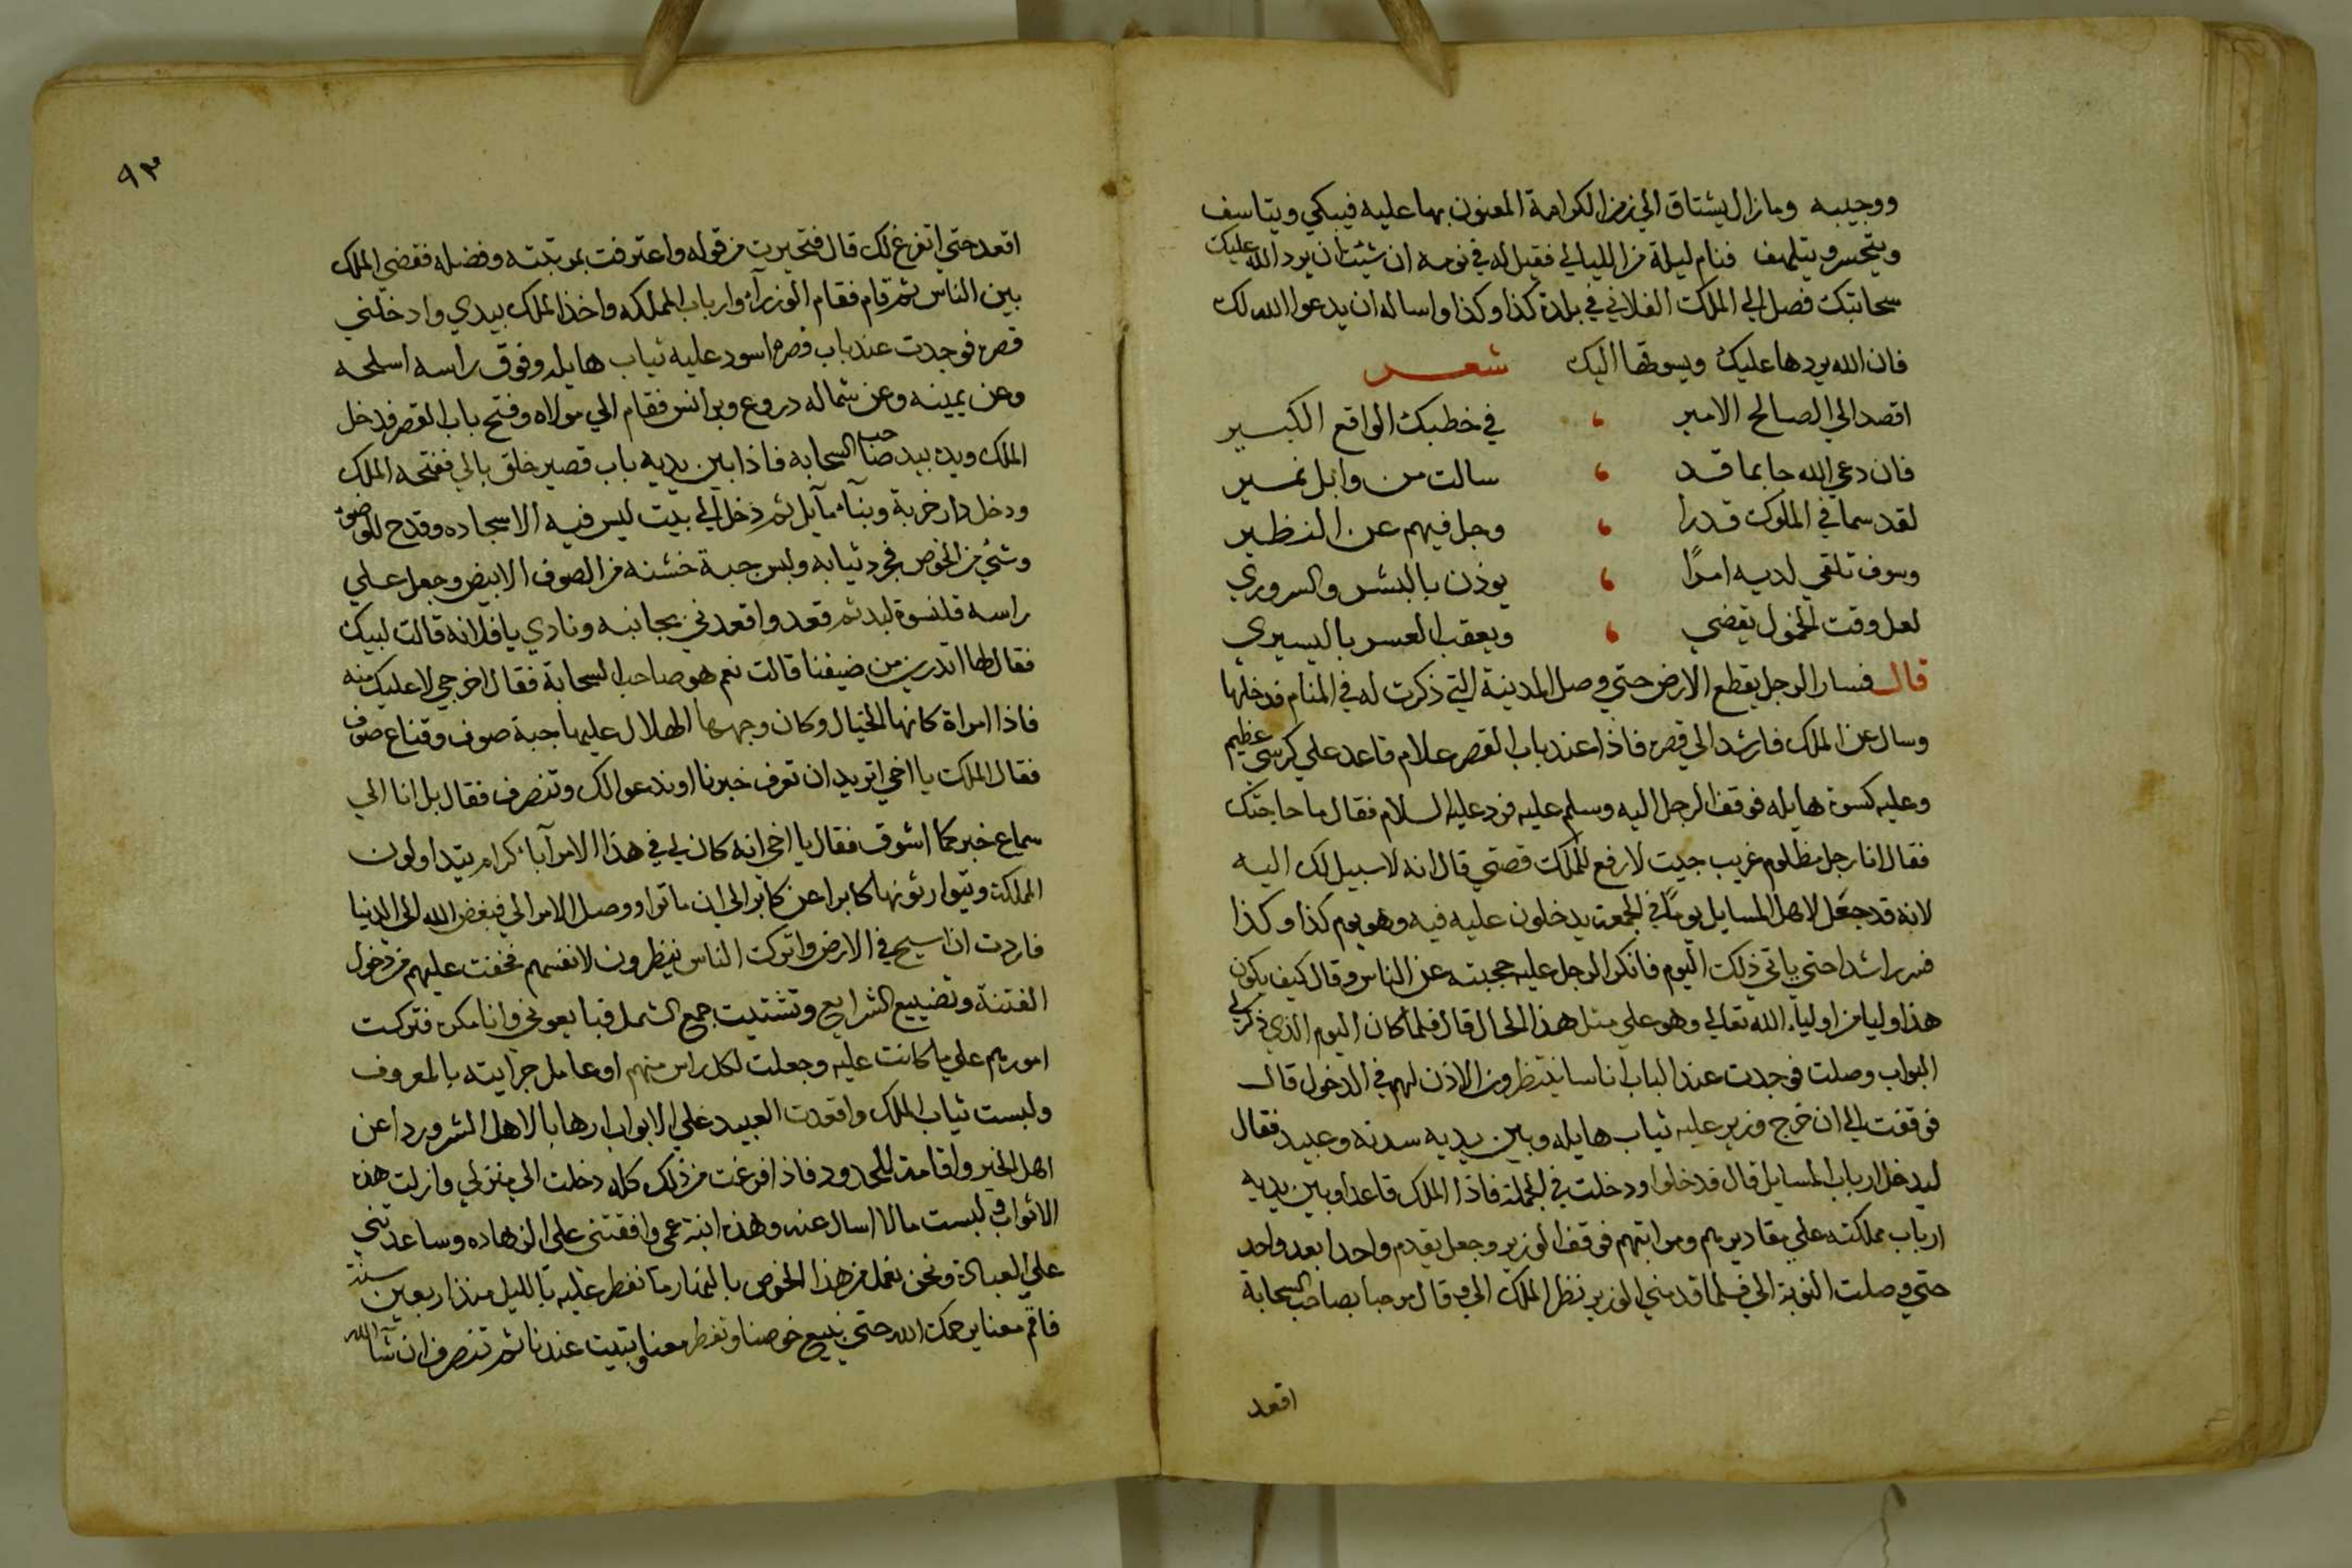 ووجيبه وما زال يشتاق الي زمن الكرامة الممنون بها عليه فيبكي ويتاسف
ويتحسر ويتلهف فنام ليلة من الليالي فقيل له في نومه ان شئت ان يرد الله عليك
سحابتك فصل الي الملك الفلاني في بلدة كذا وكذا واساله ان يدعو الله لك
فان الله يردها عليك ويسوقها اليك شعر
اقصد الي الصالح الامير ، في خطبك الواقع الكبير
فان دعي الله جا بما قد ، سالت من وابل نمير
لقد سما في الملوك قدرا ، وجل فيهم عن النظير
وسوف تلقي لديه امرًا ، يوذن بالبشر والسروري
لعل وقت الخمول يقضي ، ويعقب العسر باليسيري
قال فسار الرجل يقطع الارض حتي وصل المدينة التي ذكرت له في المنام فدخلها
وسال عن الملك فارشد الي قصره فاذا عند باب القصر غلام قاعد علي كرسي عظيم
وعليه كسوة هايله فوقف الرجل اليه وسلم عليه فرد عليه السلام فقال ما حاجتك
فقال انا رجل مظلوم غريب جيت لارفع للملك قصتي قال انه لا سبيل لك اليه
لانه قد جعل لاهل المسايل يومًا في الجمعة يدخلون عليه فيه وهو يوم كذا وكذا
فسر راشدا حتي ياتي ذلك اليوم فانكر الرجل عليه حجبته عن الناس وقال كيف يكون
هذا وليا من اولياء الله تعالي وهو علي مثل هذا الحال قال فلما كان اليوم الذي ذكر لي
البواب وصلت فوجدت عند الباب اناسا ينتظرون الاذن لهم في الدخول قال
فوقفت الي ان خرج وزير عليه ثياب هايله وبين يديه سدنه وعبيد فقال
ليدخل ارباب المسايل قال فدخلوا ودخلت في الجملة فاذا الملك قاعدا وبين يديه
ارباب مملكته علي مقاديرهم ومراتبهم فوقف الوزير وجعل يقدم واحدا بعد واحد
حتي وصلت النوبة الي فلما قدمني الوزير نظر الملك الي وقال مرحبا بصاحب السحابة
اقعد
٩٣
اقعد حتي اتفرغ لك قال فتحيرت من قوله واعترفت بمرتبته وفضله فقضي الملك
بين الناس ثم قام فقام الوزرآء وارباب المملكه واخذ الملك بيدي وادخلني
قصره فوجدت عند باب قصره اسود عليه ثياب هايله وفوق راسه اسلحه
وعن يمينه وعن شماله دروع وبرانس فقام الي مولاه وفتح باب القصر فدخل
الملك ويده بيد صاحب السحابه فاذا بين يديه باب قصير خلق بالي ففتحه الملك
ودخل دار خربة وبنآء مآيل ثم دخل الي بيت ليس فيه الا سجاده وقدح للوضوء
وشئ من الخوص فجرد ثيابه ولبس جبة خشنه من الصوف الابيض وجعل علي
راسه قلنسوة لبد ثم قعد واقعدني بجانبه ونادي يا فلانه قالت لبيك
فقال لها اتدرين من ضيفنا قالت نعم هو صاحب السحابة فقال اخرجي لا عليك منه
فاذا امراة كانها الخيال وكان وجهها الهلال عليها جبة صوف وقناع صوف
فقال الملك يا اخي اتريد ان تعرف خبرنا او ندعو لك وتنصرف فقال بل انا الي
سماع خبركما اشوق فقال يا اخي انه كان لي في هذا الامر آباء كرام يتداولون
المملكة ويتوارثونها كابرا عن كابر الي ان ماتوا ووصل الامر الي فبغض الله الي الدنيا
فاردت ان اسيح في الارض واترك الناس ينظرون لانفسهم فخفت عليهم من دخول
الفتنة وتضييع الشرايع وتشتيت جمع الشمل فبايعوني وانا مكره فتركت
امورهم علي ما كانت عليه وجعلت لكل راس منهم او عامل جرايته بالمعروف
ولبست ثياب الملك واقعدت العبيد علي الابواب ارهابا لاهل الشر وردا عن
اهل الخير واقامة للحدود فاذا فرغت من ذلك كله دخلت الي منزلي وازلت هذه
الاثواب ولبست ما لا اسال عنه وهذه ابنة عمي وافقتني علي الزهاده وساعدتني
علي العبادة ونحن نعمل من هذا الخوص بالنهار ما نفطر عليه بالليل منذ اربعين سنة
فاقم معنا يرحمك الله حتي نبيع خوصنا وتفطر معنا وتبيت عندنا ثم تنصرف ان شآ الله